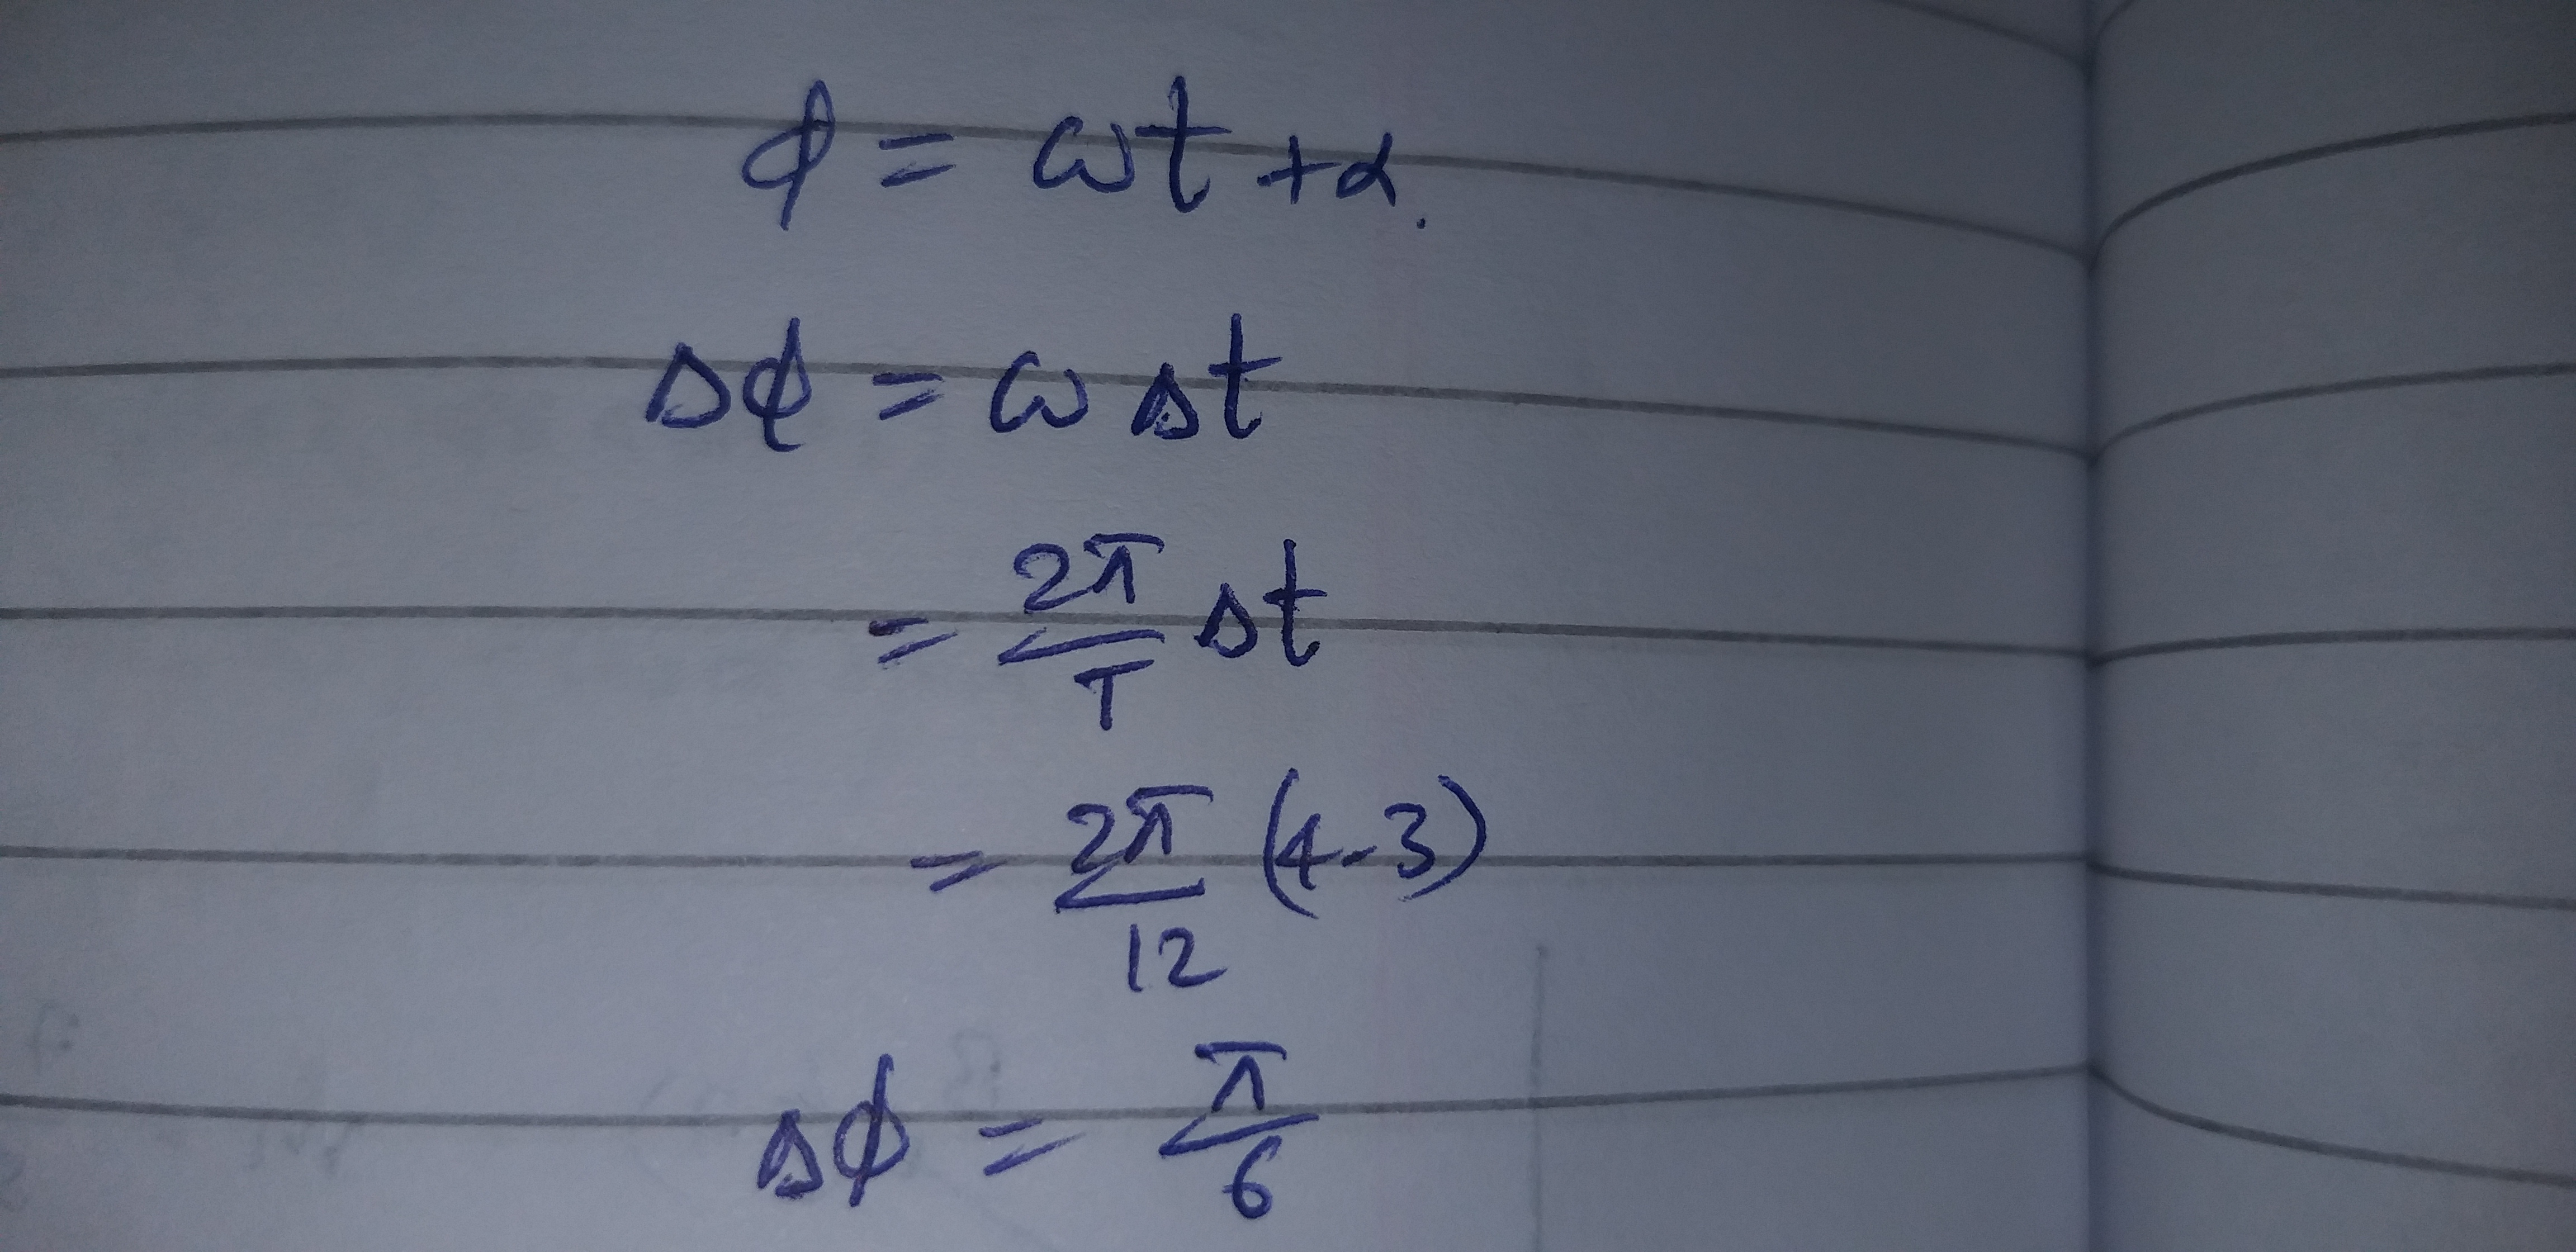 ϕ = ωt + α.
Δϕ = ω Δt
= 2π/T Δt
= 2π/12 (4-3)
Δϕ = π/6